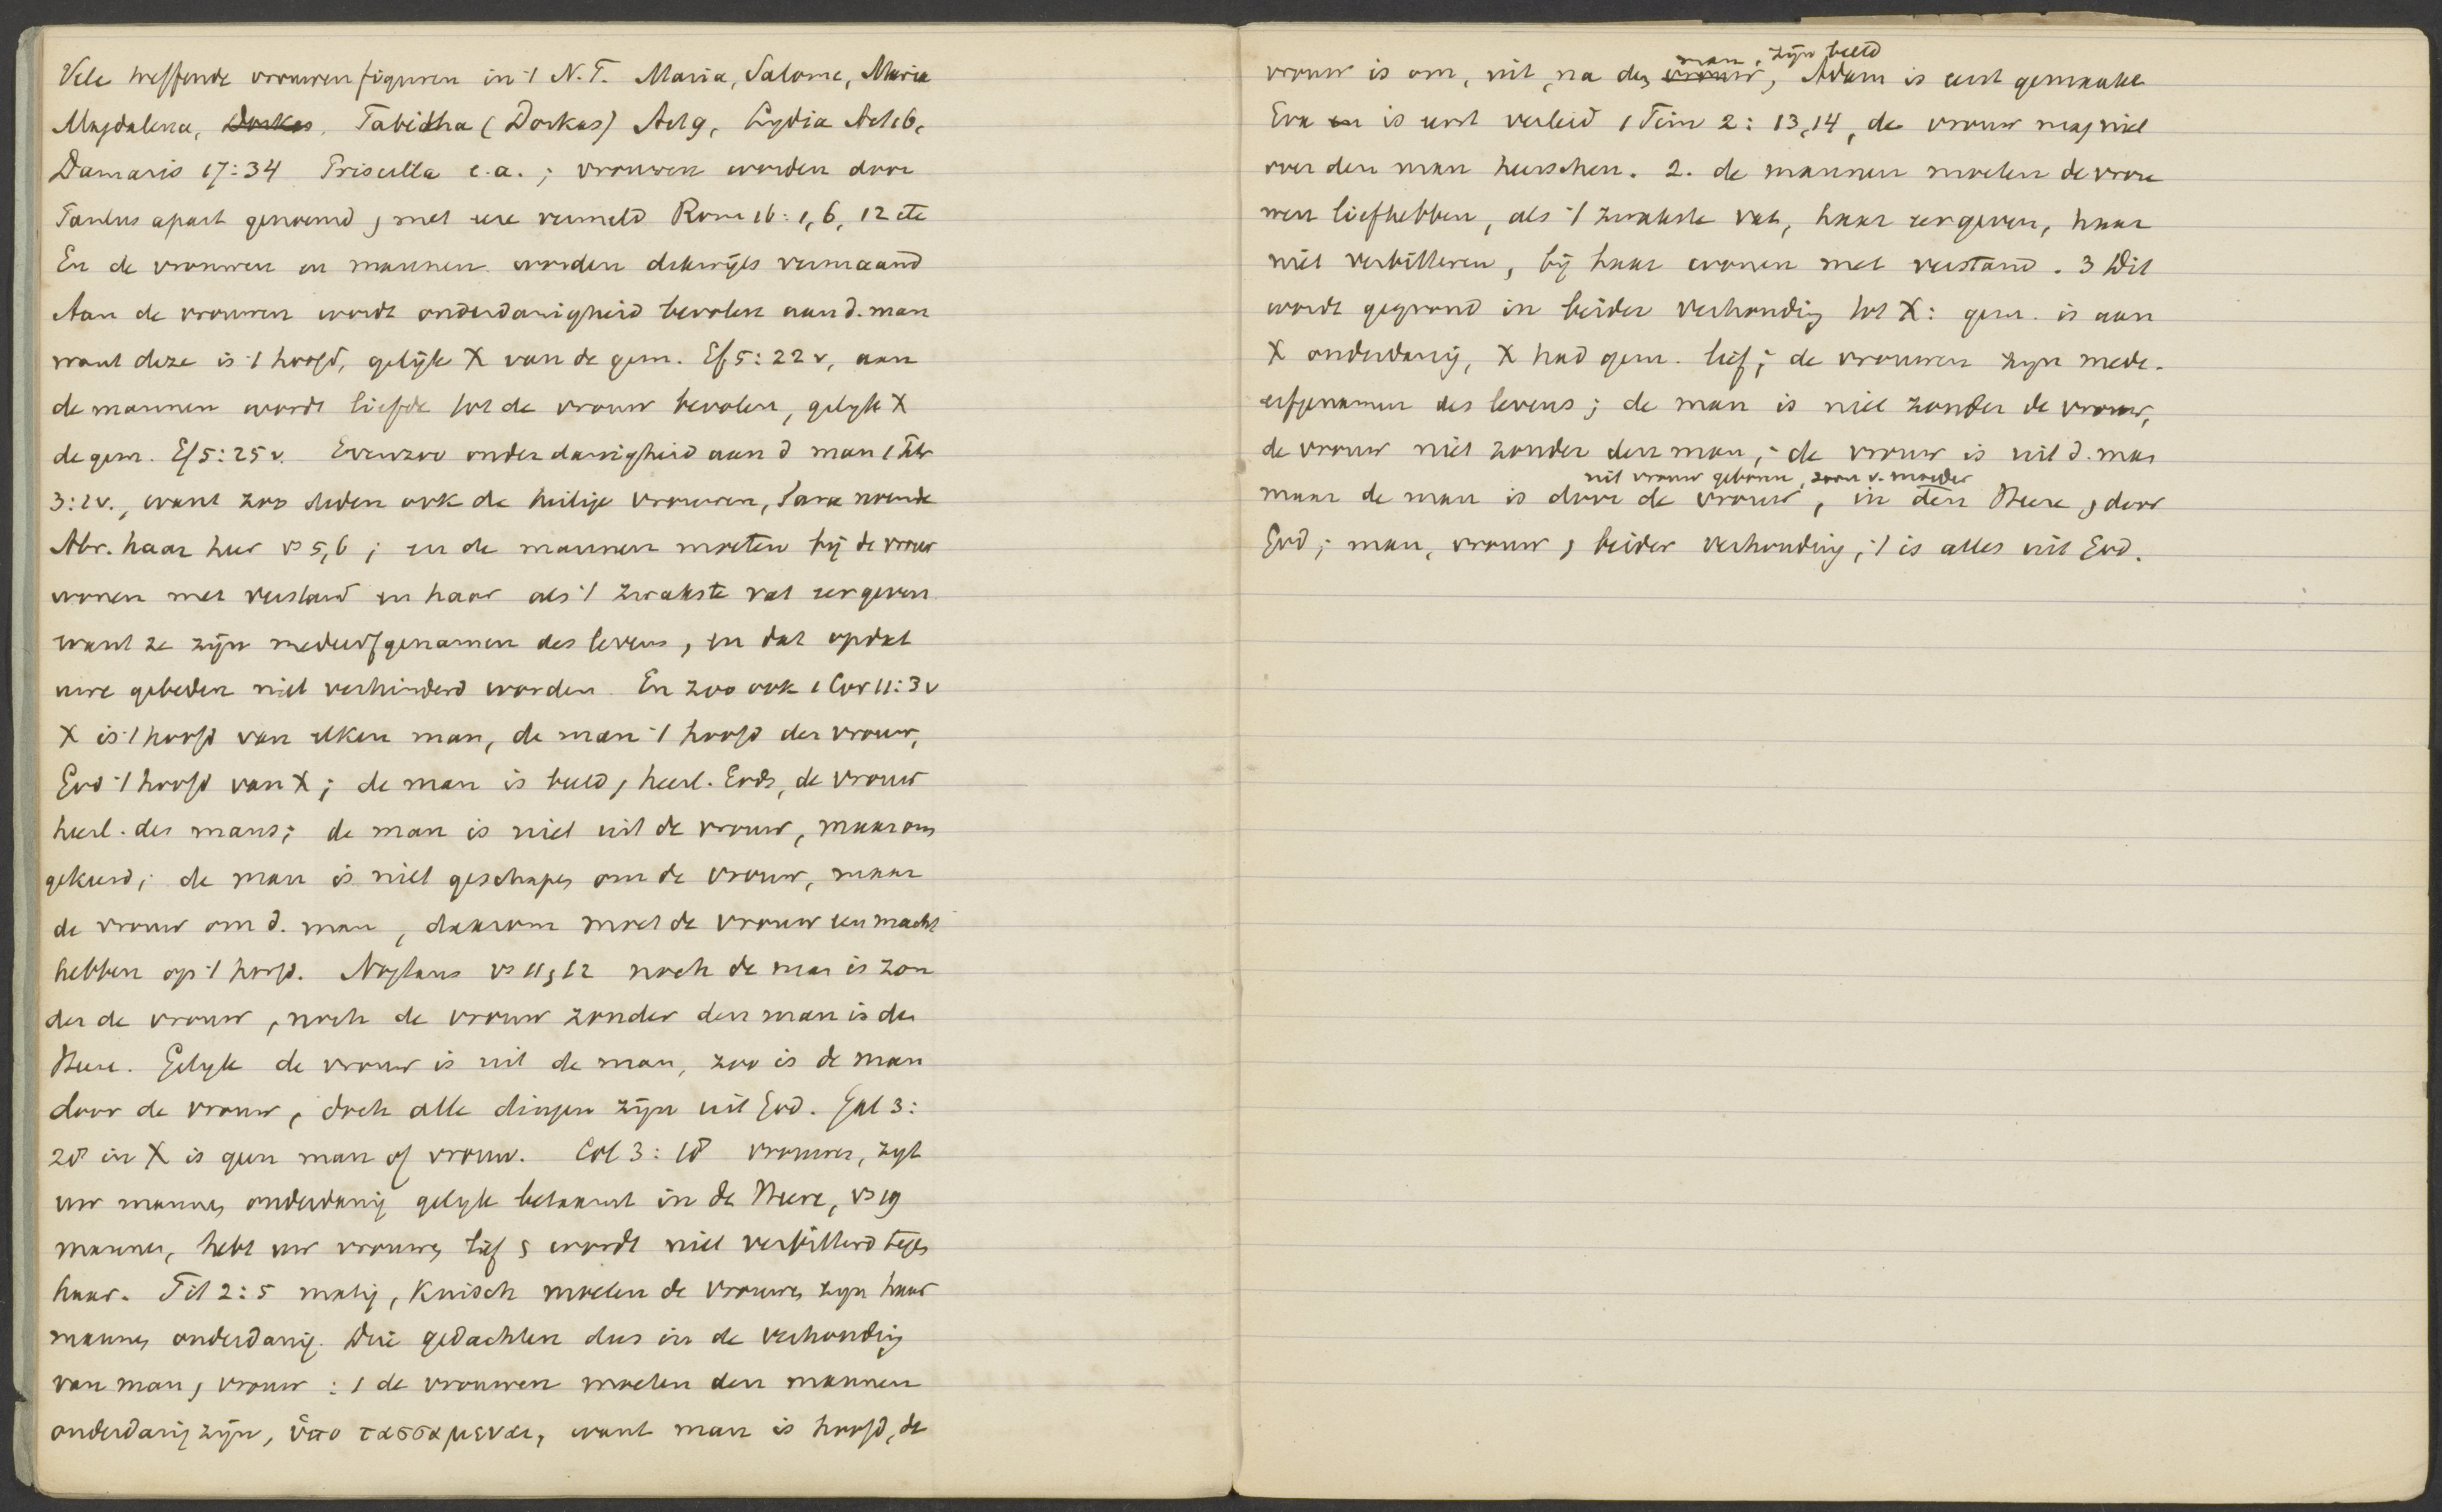 Vele treffende vrouwenfiguren in 't N.T. Maria, Salome, Maria
Magdalena, Dorkas, Tabidtha (Dorkas) Act 9, Lydia Act 16,
Damaris 17:34 Priscilla e.a.; vrouwen worden door
Paulus apart genoemd, met eere vermeld Rom 16:1, 6, 12 etc
En de vrouwen en mannen worden dikwijls vermaand
Aan de vrouwen wordt onderdanigheid bevolen aan d. man
want deze is 't hoofd, gelijk X van de gem. Ef 5:22v, aan
de mannen wordt liefde tot de vrouw bevolen, gelijk X
de gem. Ef 5:25v. Evenzoo onderdanigheid aan d man 1 Petr
3:1v., want zoo deden ook de heilige vrouwen, Sara noemde
Abr. haar heer vs 5,6; en de mannen moeten bij de vrouw
wonen met verstand en haar als 't zwakste vat eer geven
want ze zijn medeerfgenamen des levens, en dat opdat
uwe gebeden niet verhinderd worden. En zoo ook 1 Cor 11:3v
X is 't hoofd van elken man, de man 't hoofd der vrouw,
God 't hoofd van X; de man is beeld, heerl. Gods, de vrouw
heerl. des mans; de man is niet uit de vrouw, maar om
gekeerd; de man is niet geschapen om de vrouw, maar
de vrouw om d. man, daarom moet de vrouw een macht
hebben op 't hoofd. Nogtans vs 11, 12 noch de man is zon
der de vrouw, noch de vrouw zonder den man in den
Heere. Gelijk de vrouw is uit de man, zoo is de man
door de vrouw, doch alle dingen zijn uit God. Gal 3:
28 in X is geen man of vrouw. Col 3:18 vrouwen, zijt
uw mannen onderdanig gelijk betaamt in de Heere, vs 19
mannen, hebt uw vrouwen lief, wordt niet verbitterd tegen
haar. Tit 2:5 matig, kuisch moeten de vrouwen zijn haar
mannen onderdanig. Drie gedachten dus in de verhouding
van man, vrouw: 1 de vrouwen moeten den mannen
onderdanig zijn, ὑπο τασσαμεναι, want man is hoofd, de
vrouw is om, uit, na den vrouw, Adam is eerst gemaakt
man, zijn beeld
Eva en is eerst verleid 1 Tim 2:13,14, de vrouw mag niet
over den man heerschen. 2. de mannen moeten de vrou
wen liefhebben, als 't zwakste vat, haar eer geven, haar
niet verbitteren, bij haar wonen met verstand. 3 Dit
wordt gegrond in beider verhouding tot X: gem. is aan
X onderdanig, X had gem. lief; de vrouwen zijn mede-
erfgenamen des levens; de man is niet zonder de vrouw,
de vrouw niet zonder den man; de vrouw is uit d. man
maar de man is door de vrouw, in den Heere, door
uit vrouw geboren, zoon v. moeder
God; man, vrouw, beider verhouding, 't is alles uit God.